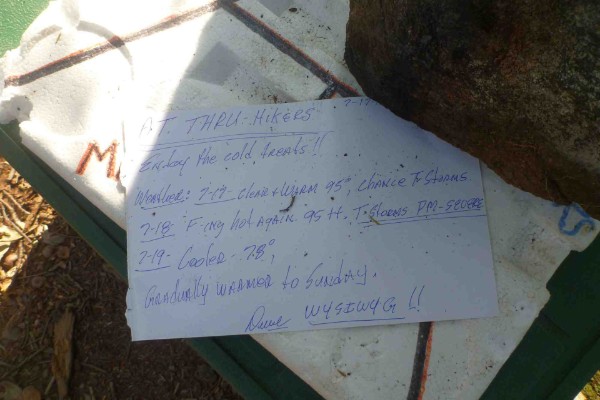 7-17
AT THRU-HIKERS
Enjoy the cold treats!!
Weather: 7-17- Clear + WARM 95° Chance T-STORMS
7-18 F-ing hot AGAIN. 95++. T-STORMS PM-
7-19- Cooler - 78°,
GRADUALLY WARMER to SUNDAY.
WYSIWYG !!
M